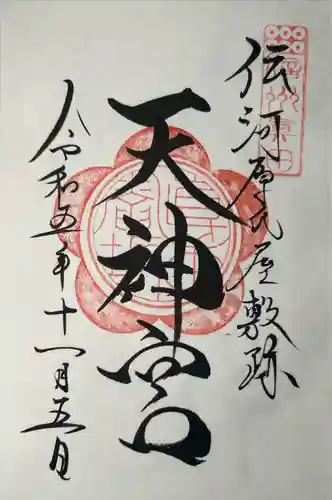 伝河原氏屋敷跡
信州真田
天神宮
令和五年十一月五日